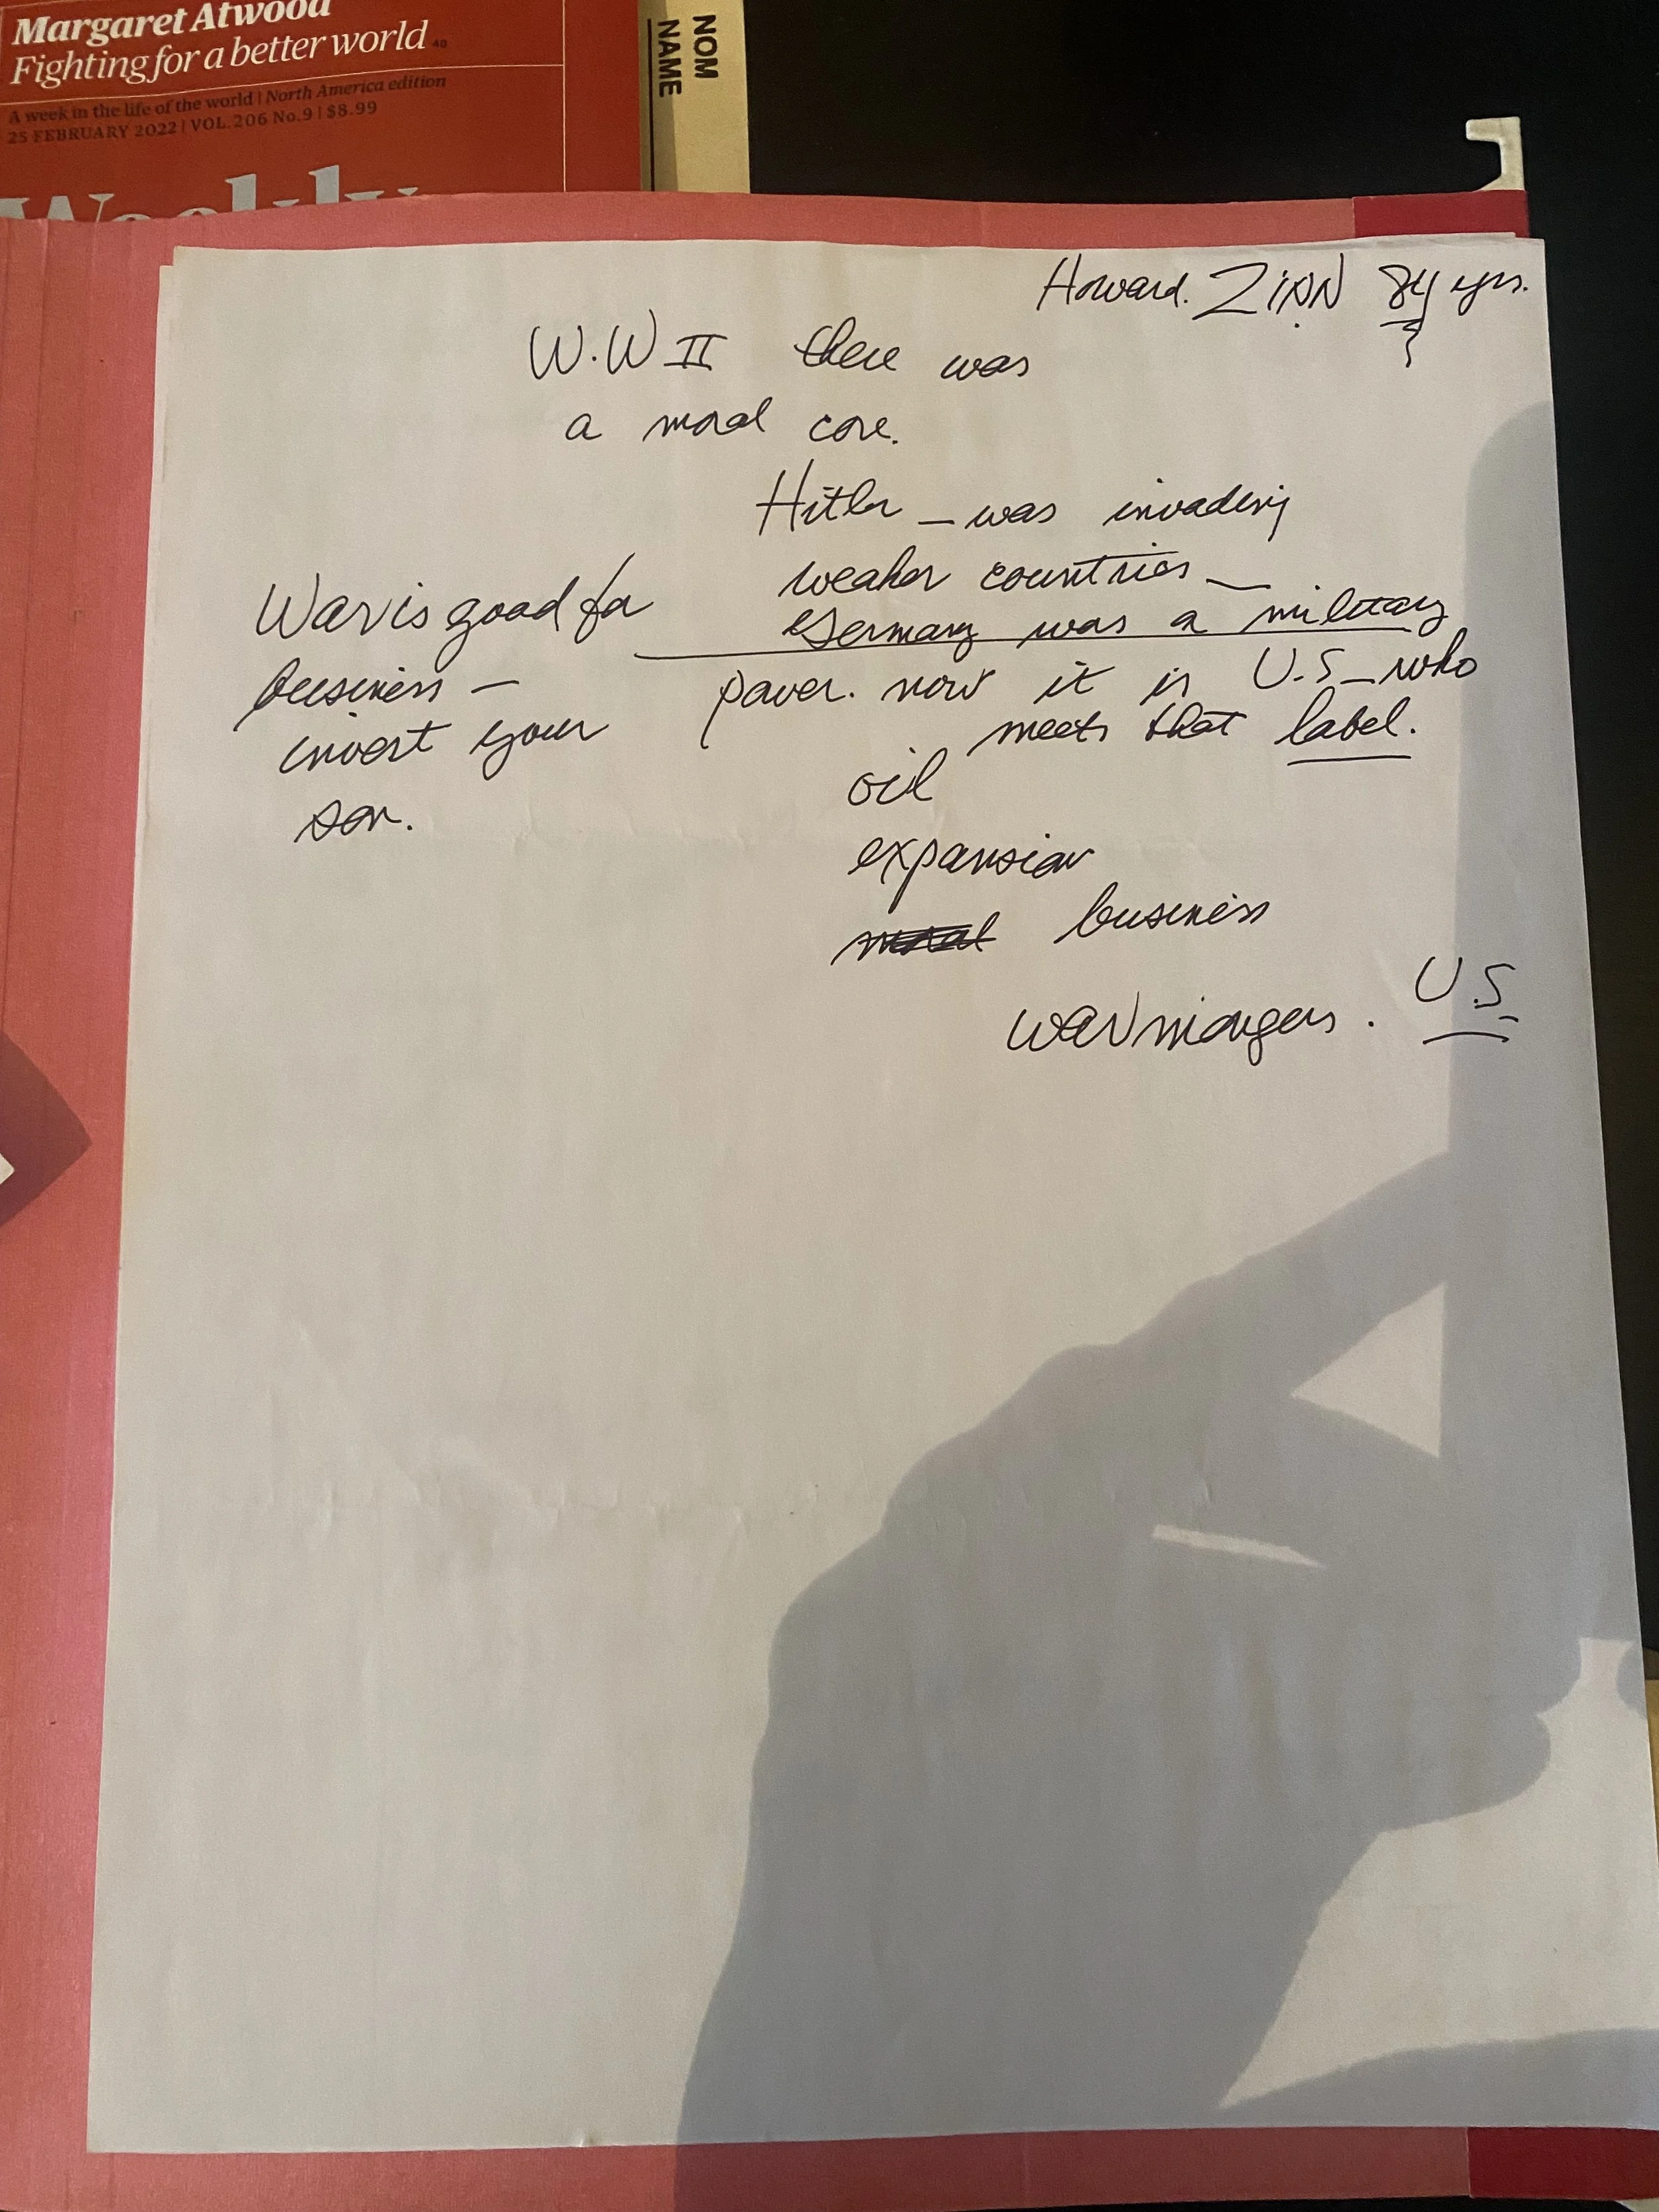 Margaret Atwood
Fighting for a better world 40
A week in the life of the world | North America edition
25 FEBRUARY 2022 | VOL. 206 No.9 | $8.99
Weekly
NOM
NAME
Howard. ZINN 84 yrs.
W.W II there was
a moral core.
Hitler _ was invading
weaker countries _
Germany was a military
power. now it is U.S _ who
meets that label.
War is good for
business —
invest your
son.
oil
expansion
moral business
warmongers. U.S.